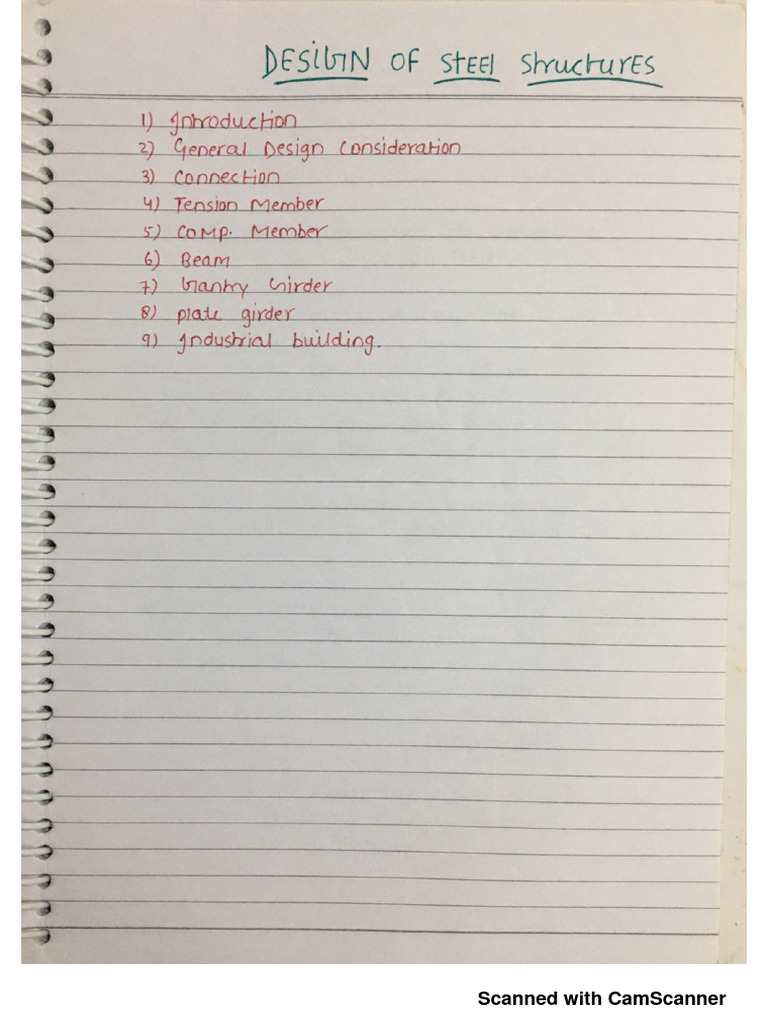 DESIGN OF STEEL STRUCTURES
1) Introduction
2) General Design Consideration
3) Connection
4) Tension Member
5) Comp. Member
6) Beam
7) Gantry Girder
8) Plate girder
9) Industrial building.
Scanned with CamScanner